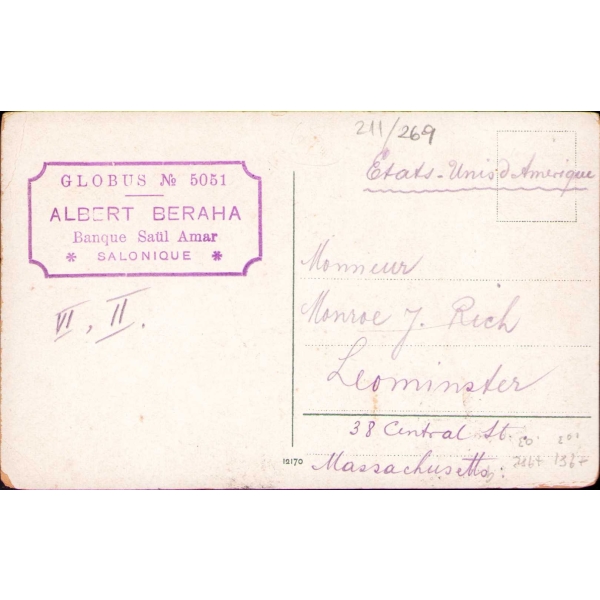 211/269
GLOBUS № 5051
ALBERT BERAHA
Banque Saül Amar
* SALONIQUE *
VI, II.
Etats-Unis d'Amerique
Monsieur
Monroe J. Rich
Leominster
38 Central St.
Massachusetts.
12170